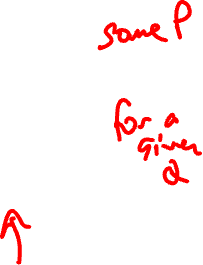 some P
for a
given
Q